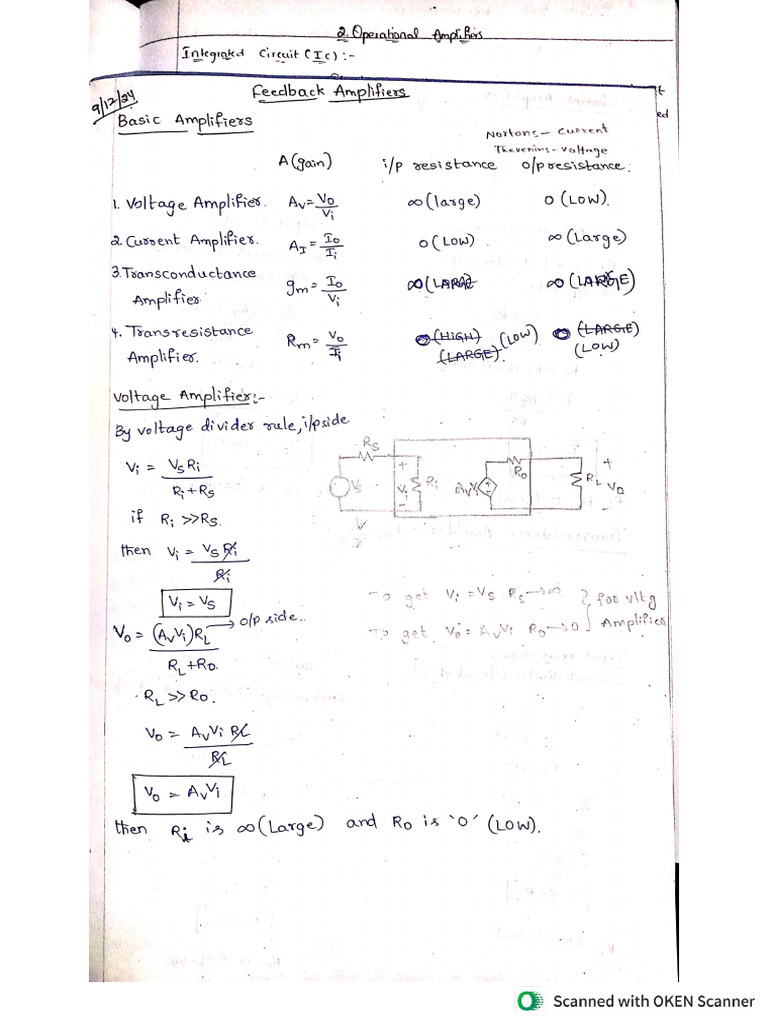 2. Operational Amplifiers
Integrated Circuit (IC) :-
9/12/24
Feedback Amplifiers
ed
Basic Amplifiers
Nortons - Current
Thevenins - Voltage
A (gain) i/p resistance o/p resistance.
1. Voltage Amplifier. Av = Vo/Vi ∞ (large) 0 (LOW).
2. Current Amplifier. AI = Io/Ii 0 (LOW) ∞ (Large)
3. Transconductance Amplifier gm = Io/Vi ∞ (LARGE ∞ (LARGE)
4. Transresistance Amplifier. Rm = Vo/Ii (HIGH) (LARGE). (LOW) (LARGE) (LOW)
Voltage Amplifier :-
By voltage divider rule, i/p side
Rs Vs + Vi - Ri AvVi Ro RL + Vo -
Vi = VsRi / Ri+Rs
if Ri >> Rs.
then Vi = Vs Ri / Ri
Vi = Vs
To get Vi = Vs Rs → ∞ } for vltg
To get Vo = AvVi Ro → 0 } Amplifier
Vo = (AvVi)RL / RL+Ro. → o/p side..
RL >> Ro.
Vo = AvVi RL / RL
Vo = AvVi
then Ri is ∞ (Large) and Ro is '0' (LOW).
Scanned with OKEN Scanner